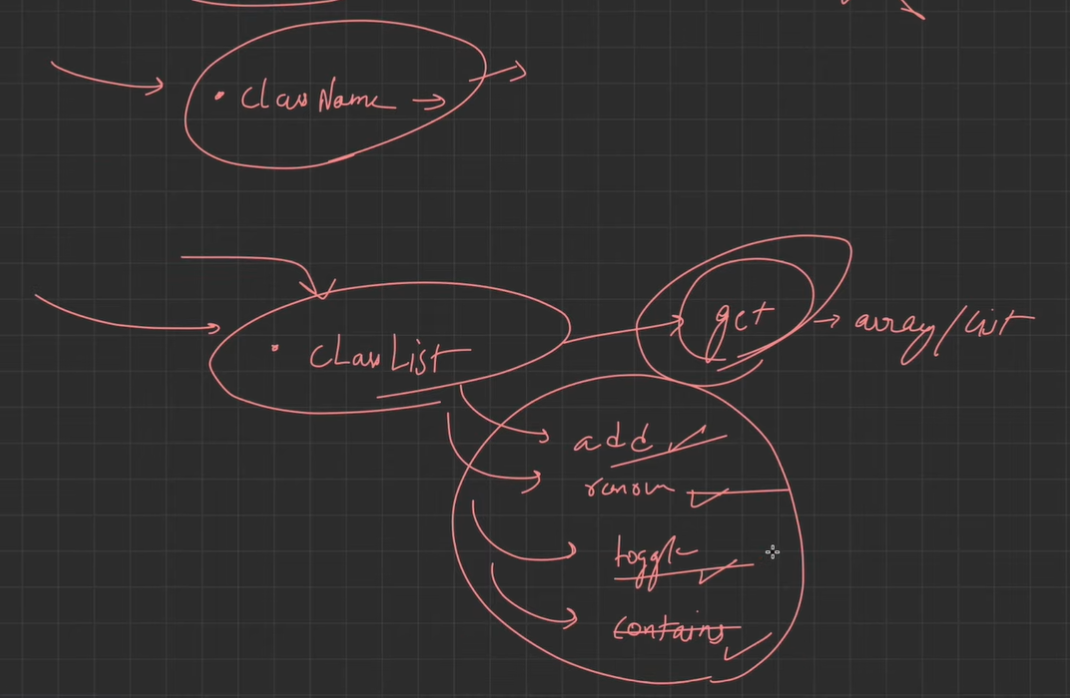 • ClassName →
• classList
get → array/list
add
remove
toggle
contains